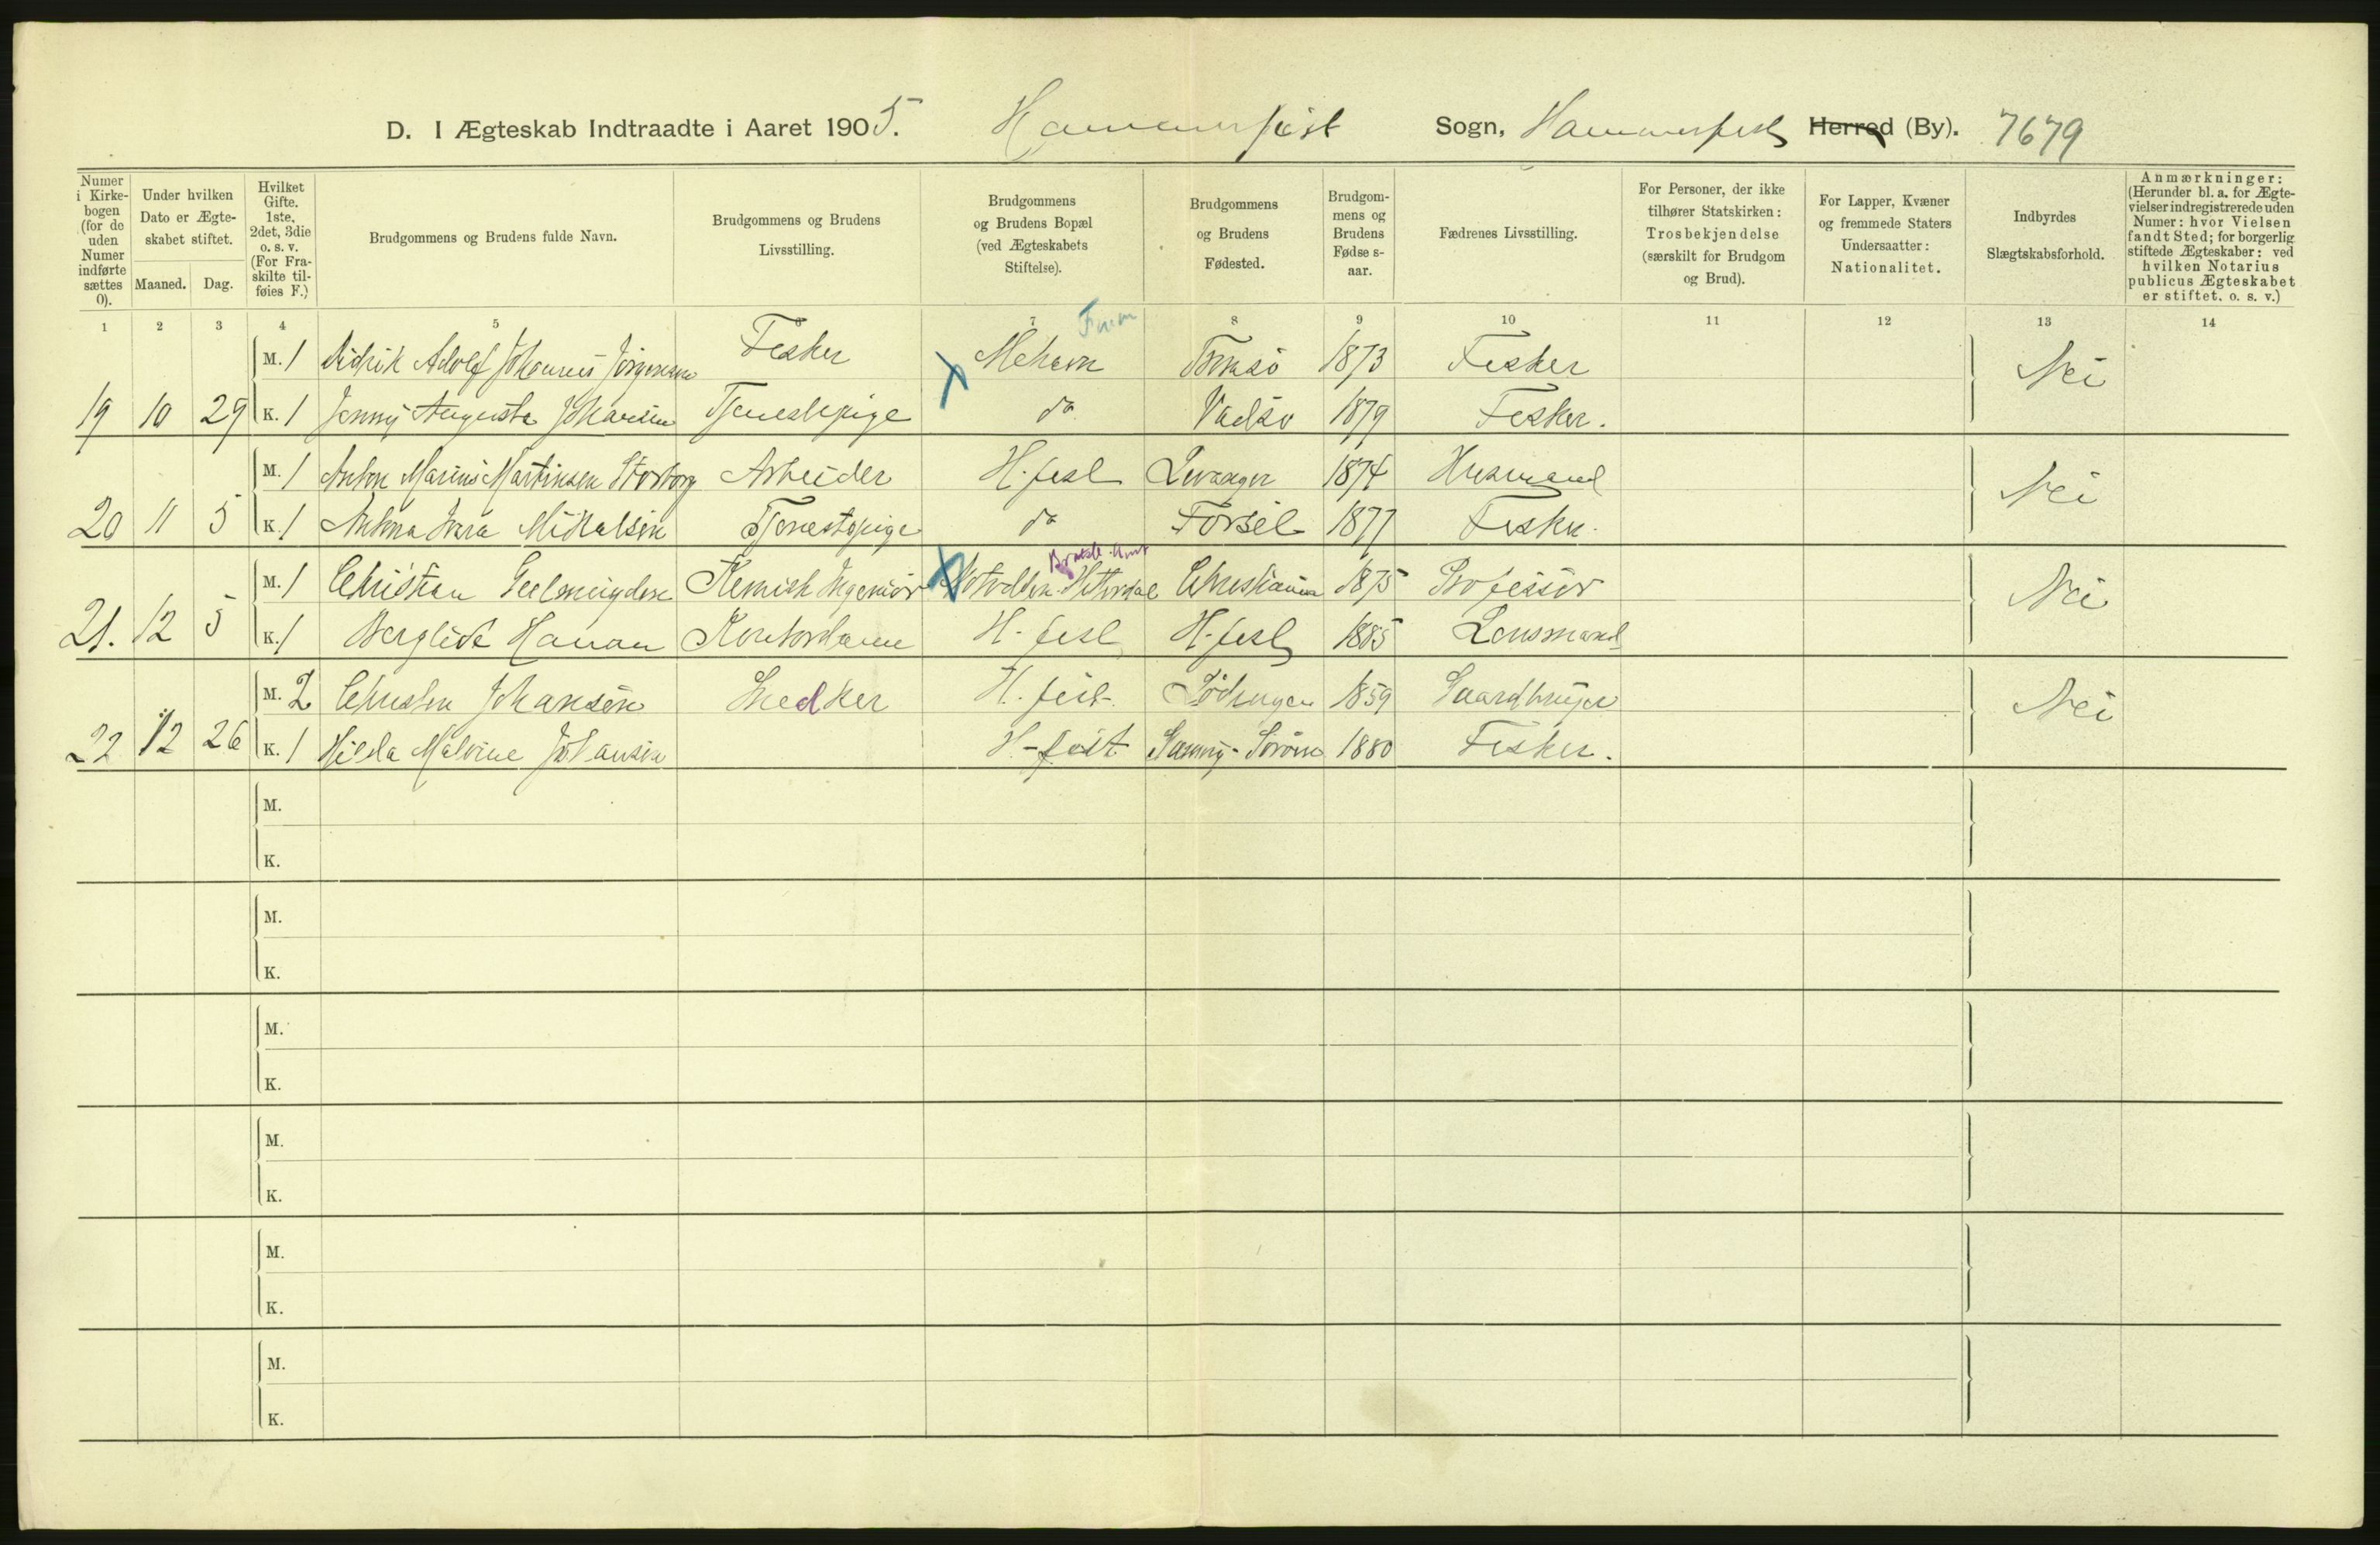 D. I Ægteskab Indtraadte i Aaret 1905. Hammerfest Sogn, Hammerfest Herred (By). 7679
Numer i Kirkebogen (for de uden Numer indførte sættes 0).
Under hvilken Dato er Ægteskabet stiftet.
Maaned. Dag.
Hvilket Gifte. 1ste, 2det, 3die o. s. v. (For Fraskilte tilføies F.)
Brudgommens og Brudens fulde Navn.
Brudgommens og Brudens Livsstilling.
Brudgommens og Brudens Bopæl (ved Ægteskabets Stiftelse).
Brudgommens og Brudens Fødested.
Brudgommens og Brudens Fødselsaar.
Fædrenes Livsstilling.
For Personer, der ikke tilhører Statskirken: Trosbekjendelse (særskilt for Brudgom og Brud).
For Lapper, Kvæner og fremmede Staters Undersaatter: Nationalitet.
Indbyrdes Slægtskabsforhold.
Anmærkninger: (Herunder bl. a. for Ægtevielser indregistrerede uden Numer: hvor Vielsen fandt Sted; for borgerlig stiftede Ægteskaber: ved hvilken Notarius publicus Ægteskabet er stiftet. o. s. v.)
1 2 3 4 5 6 7 8 9 10 11 12 13 14
M. 1 Didrik Adolf Johannes Jørgensen Fisker Mehavn Tromsö 1873 Fisker Nei
19 10 29 K. 1 Jenny Augusta Johansen Tjenestepige do Vadsö 1879 Fisker.
M. 1 Anton Marius Martinsen Storborg Arbeider H.fest Levanger 1874 Husmand Nei
20 11 5 K. 1 Antona Mikalsen Tjenestepige do Forsöl 1877 Fisker.
Bratsb. Amt
M. 1 Christian Geelmuyden Kemisk Ingeniør Notodden Hitterdal Christiania 1875 Professor Nei
21. 12 5 K. 1 Bergliot Hanan Kontordame H-fest H-fest 1885 Lensmand
M. 2 Christen Johansen Snedker H.fest. Lödingen 1859 Gaardbruger Nei
22 12 26 K. 1 Hilda Malvine Johansen H-fest 1880 Fisker.
M.
K.
M.
K.
M.
K.
M.
K.
M.
K.
M.
K.